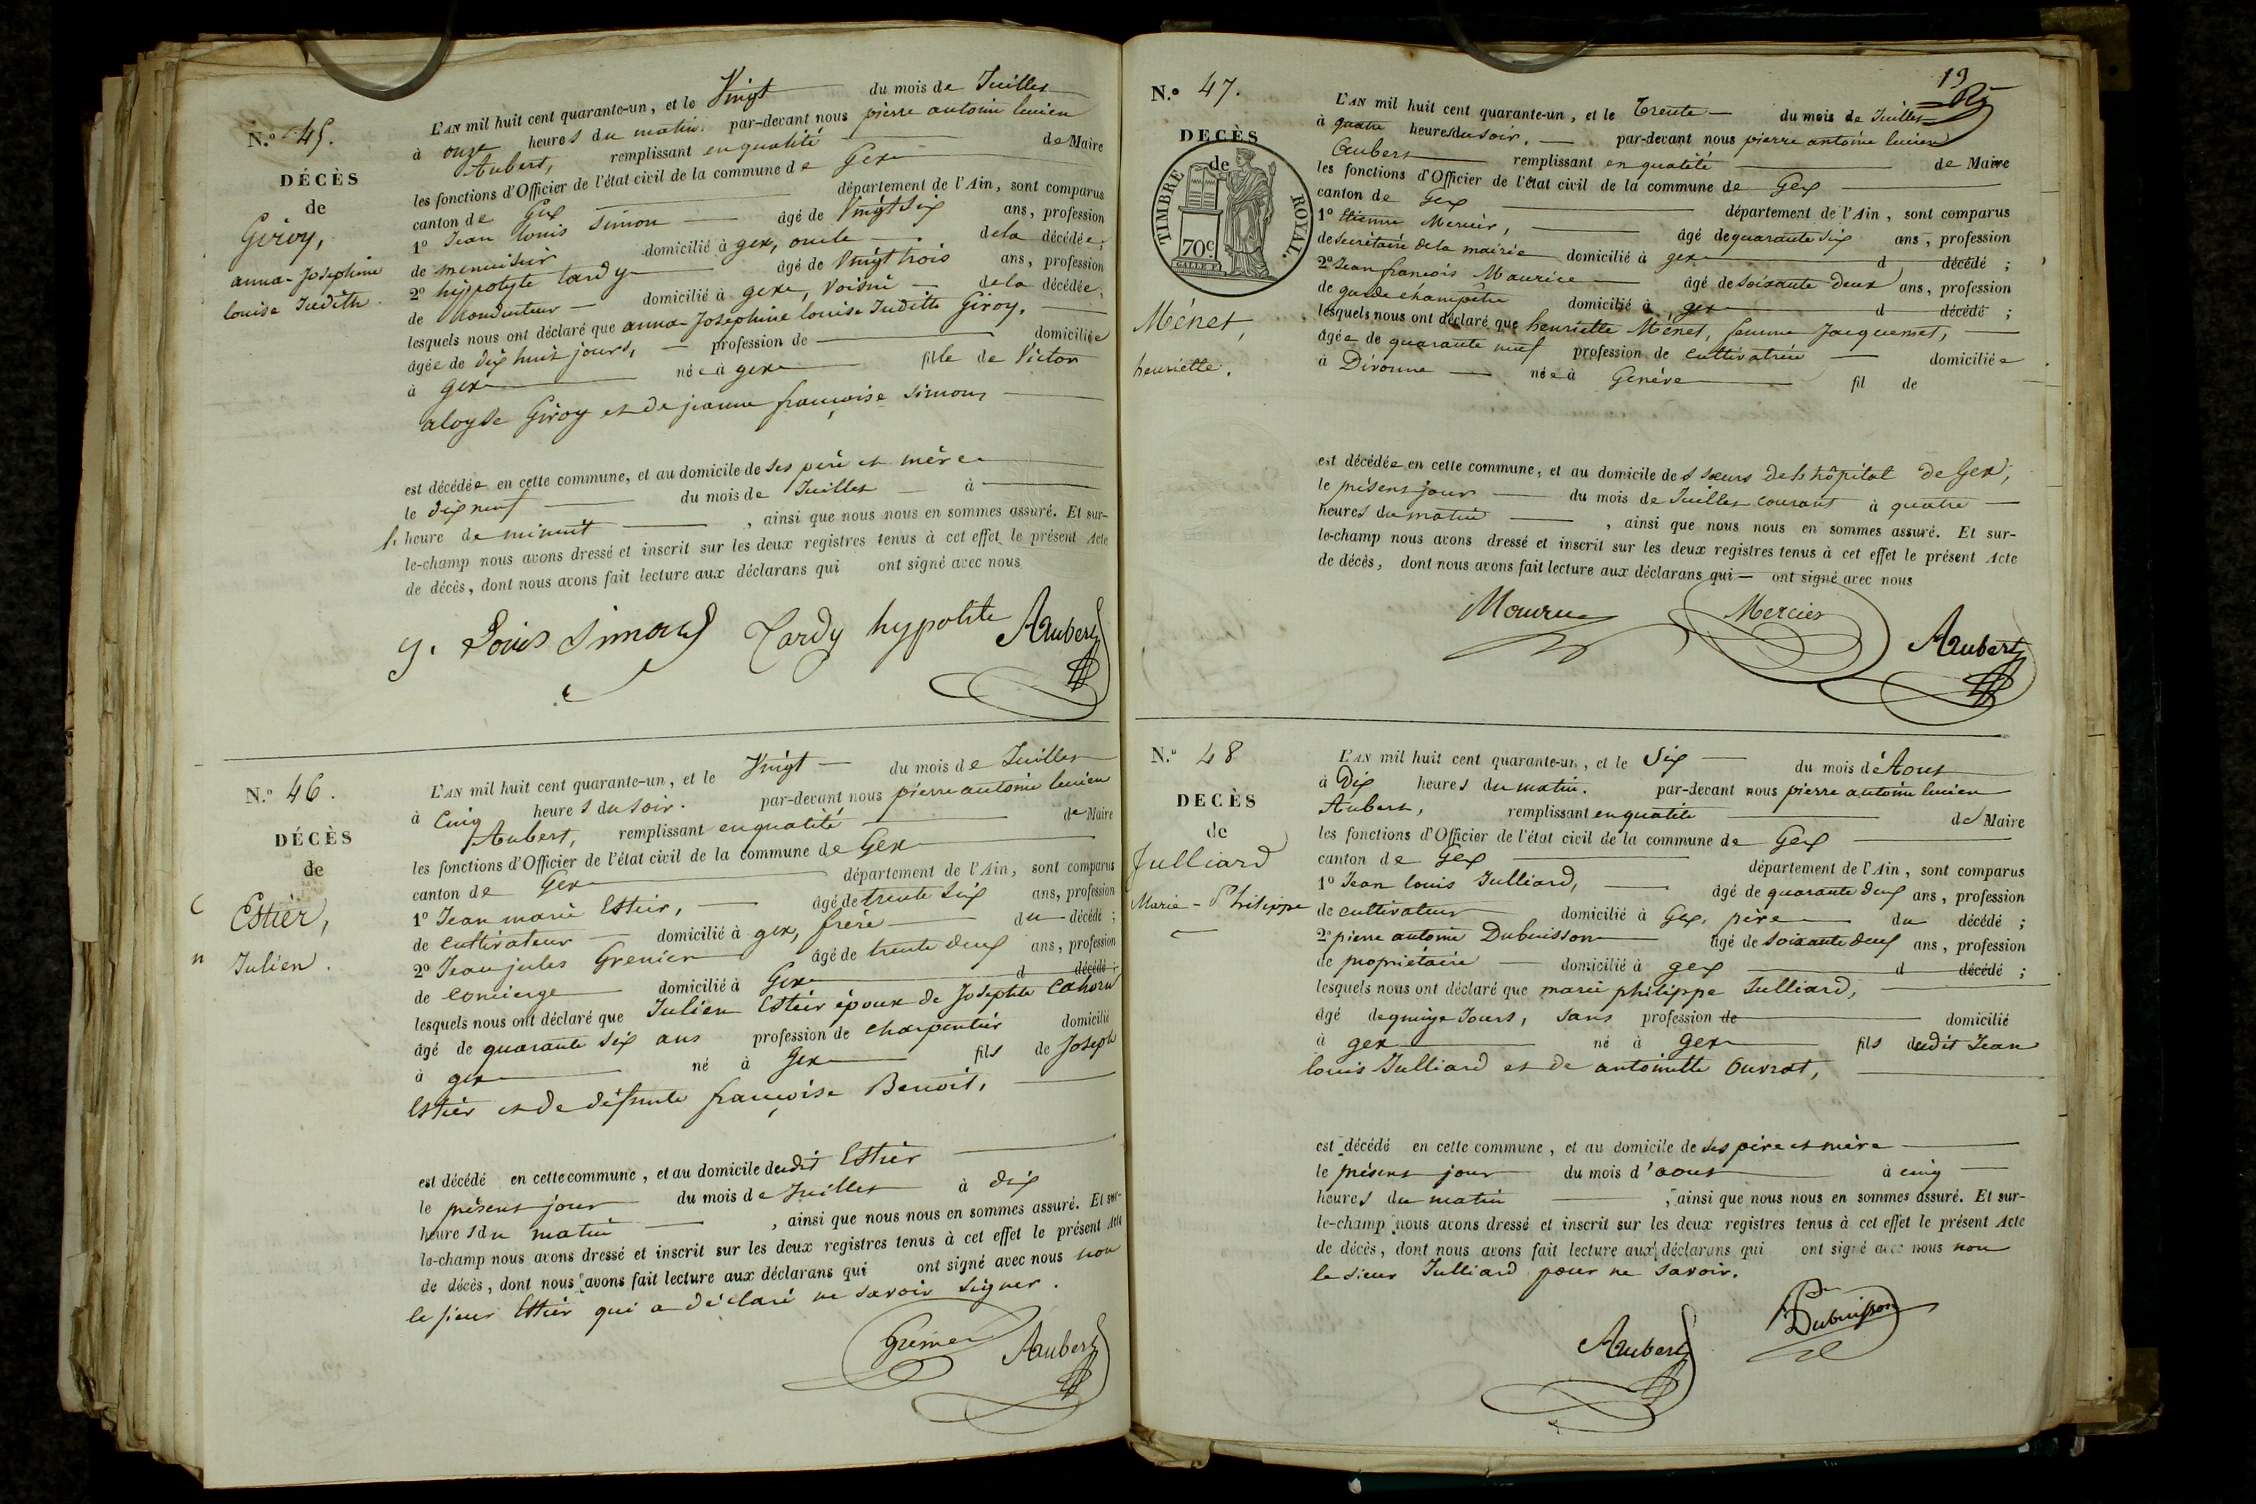 N.º 45.
DÉCÈS
de
Giroy,
anna-Josephine
louise Judith.
L'AN mil huit cent quarante-un, et le Vingt du mois de Juillet
à onze heures du matin. par-devant nous pierre antoine lucien
Aubert, remplissant en qualité de Maire
les fonctions d'Officier de l'état civil de la commune de Gex
canton de Gex département de l'Ain, sont comparus
1º Jean louis Simon âgé de Vingt six ans, profession
de menuisier domicilié à gex, oncle de la décédée;
2º hyppolyte tardy âgé de Vingt trois ans, profession
de conducteur domicilié à gex, voisin de la décédée,
lesquels nous ont déclaré que anna-Josephine louise Judith Giroy,
âgée de dix huit jours, profession de domiciliée
à gex née à gex fille de Victor
aloyse Giroy et de jeanne françoise Simon,
est décédée en cette commune, et au domicile de ses père et mère
le dix neuf du mois de Juillet à
l' heure de minuit , ainsi que nous nous en sommes assuré. Et sur-
le-champ nous avons dressé et inscrit sur les deux registres tenus à cet effet le présent Acte
de décès, dont nous avons fait lecture aux déclarans qui ont signé avec nous
J. Louis Simond Tardy hypolite AAubert
N.º 46.
DÉCÈS
de
Estier,
Julien.
L'AN mil huit cent quarante-un, et le Vingt du mois de Juillet
à Cinq heures du soir. par-devant nous pierre antoine lucien
Aubert, remplissant en qualité de Maire
les fonctions d'Officier de l'état civil de la commune de Gex
canton de Gex département de l'Ain, sont comparus
1º Jean marie Estier, âgé de trente six ans, profession
de cultivateur domicilié à gex, frère du décédé;
2º Jean jules Grenier âgé de trente deux ans, profession
de concierge domicilié à Gex d décédé;
lesquels nous ont déclaré que Julien Estier époux de Josephte Cahorn
âgé de quarante six ans profession de charpentier domicilié
à gex né à Gex fils de Joseph
Estier et de défunte françoise Benoit,
est décédé en cette commune, et au domicile dudit Estier
le présent jour du mois de Juillet à dix
heures du matin , ainsi que nous nous en sommes assuré. Et sur-
le-champ nous avons dressé et inscrit sur les deux registres tenus à cet effet le présent Acte
de décès, dont nous avons fait lecture aux déclarans qui ont signé avec nous non
le sieur Estier qui a déclaré ne savoir signer.
Grenier AAubert
19
N.º 47.
DECÈS
de
TIMBRE ROYAL.
70c
Ménet,
henriette.
L'AN mil huit cent quarante-un, et le Trente du mois de Juillet
à quatre heures du soir. par-devant nous pierre antoine lucien
Aubert remplissant en qualité de Maire
les fonctions d'Officier de l'état civil de la commune de Gex
canton de Gex département de l'Ain, sont comparus
1º Etienne Mercier, âgé de quarante six ans, profession
de secrétaire de la mairie domicilié à gex d décédé;
2º Jean françois Maurice âgé de soixante deux ans, profession
de garde champêtre domicilié à gex d décédé;
lesquels nous ont déclaré que henriette Ménet, femme Jacquemet,
âgée de quarante neuf profession de cultivatrice domiciliée
à Divonne née à Genève fil de
est décédée en cette commune, et au domicile des sœurs de l'hôpital de Gex,
le présent jour du mois de Juillet courant à quatre
heures du matin , ainsi que nous nous en sommes assuré. Et sur-
le-champ nous avons dressé et inscrit sur les deux registres tenus à cet effet le présent Acte
de décès, dont nous avons fait lecture aux déclarans qui ont signé avec nous
Mercier AAubert
N.º 48
DECÈS
de
Julliard
Marie-Philippe
L'AN mil huit cent quarante-un, et le Six du mois d'Aout
à Dix heures du matin. par-devant nous pierre antoine lucien
Aubert, remplissant en qualité de Maire
les fonctions d'Officier de l'état civil de la commune de Gex
canton de Gex département de l'Ain, sont comparus
1º Jean louis Julliard, âgé de quarante deux ans, profession
de cultivateur domicilié à Gex, père du décédé;
2º pierre antoine Dubuisson âgé de soixante deux ans, profession
de propriétaire domicilié à gex d décédé;
lesquels nous ont déclaré que marie philippe Julliard,
âgé de quinze Jours, sans profession de domicilié
à gex né à gex fils dudit Jean
louis Julliard et de antoinette Ouvrat,
est décédé en cette commune, et au domicile de ses père et mère
le présent jour du mois d'aout à cinq
heures du matin , ainsi que nous nous en sommes assuré. Et sur-
le-champ nous avons dressé et inscrit sur les deux registres tenus à cet effet le présent Acte
de décès, dont nous avons fait lecture aux déclarans qui ont signé avec nous non
le sieur Julliard pour ne savoir.
AAubert Dubuisson